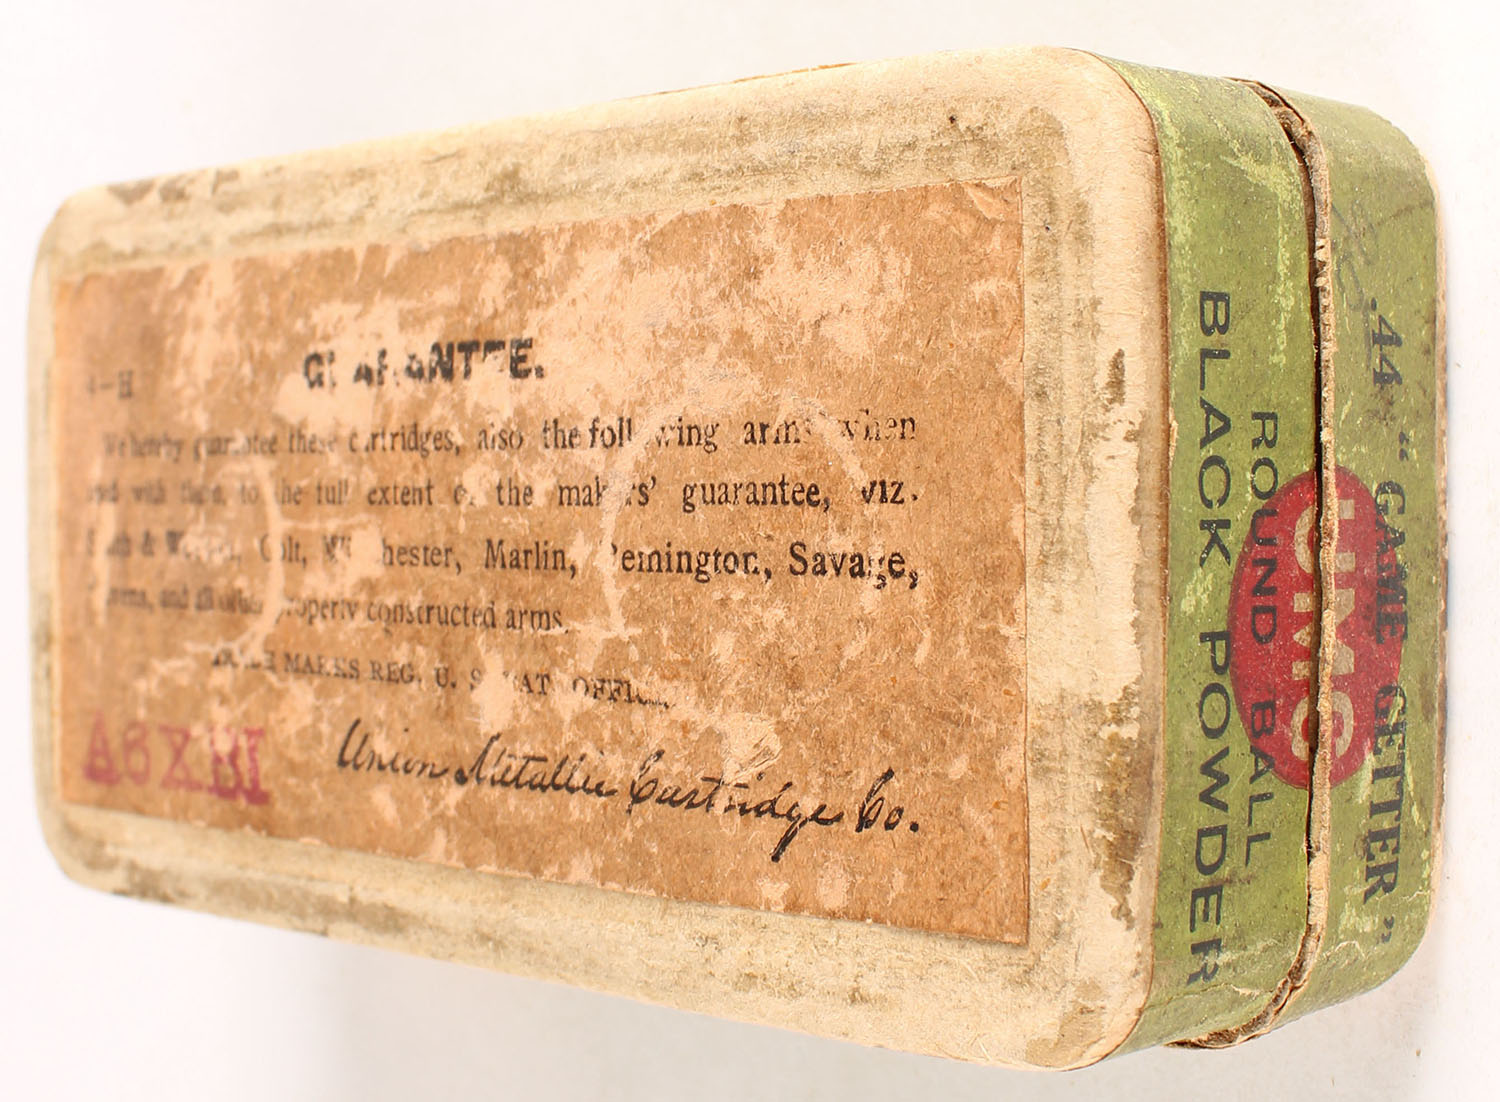 GUARANTEE.
4-H
We hereby guarantee these cartridges, also the following arms when
used with them, to the full extent of the makers' guarantee, viz.
Smith & Wesson, Colt, Winchester, Marlin, Remington, Savage,
and all other properly constructed arms.
TRADE MARKS REG. U. S. PAT. OFFICE
A6XBI
Union Metallic Cartridge Co.
.44 "GAME GETTER"
UMC
ROUND BALL
BLACK POWDER